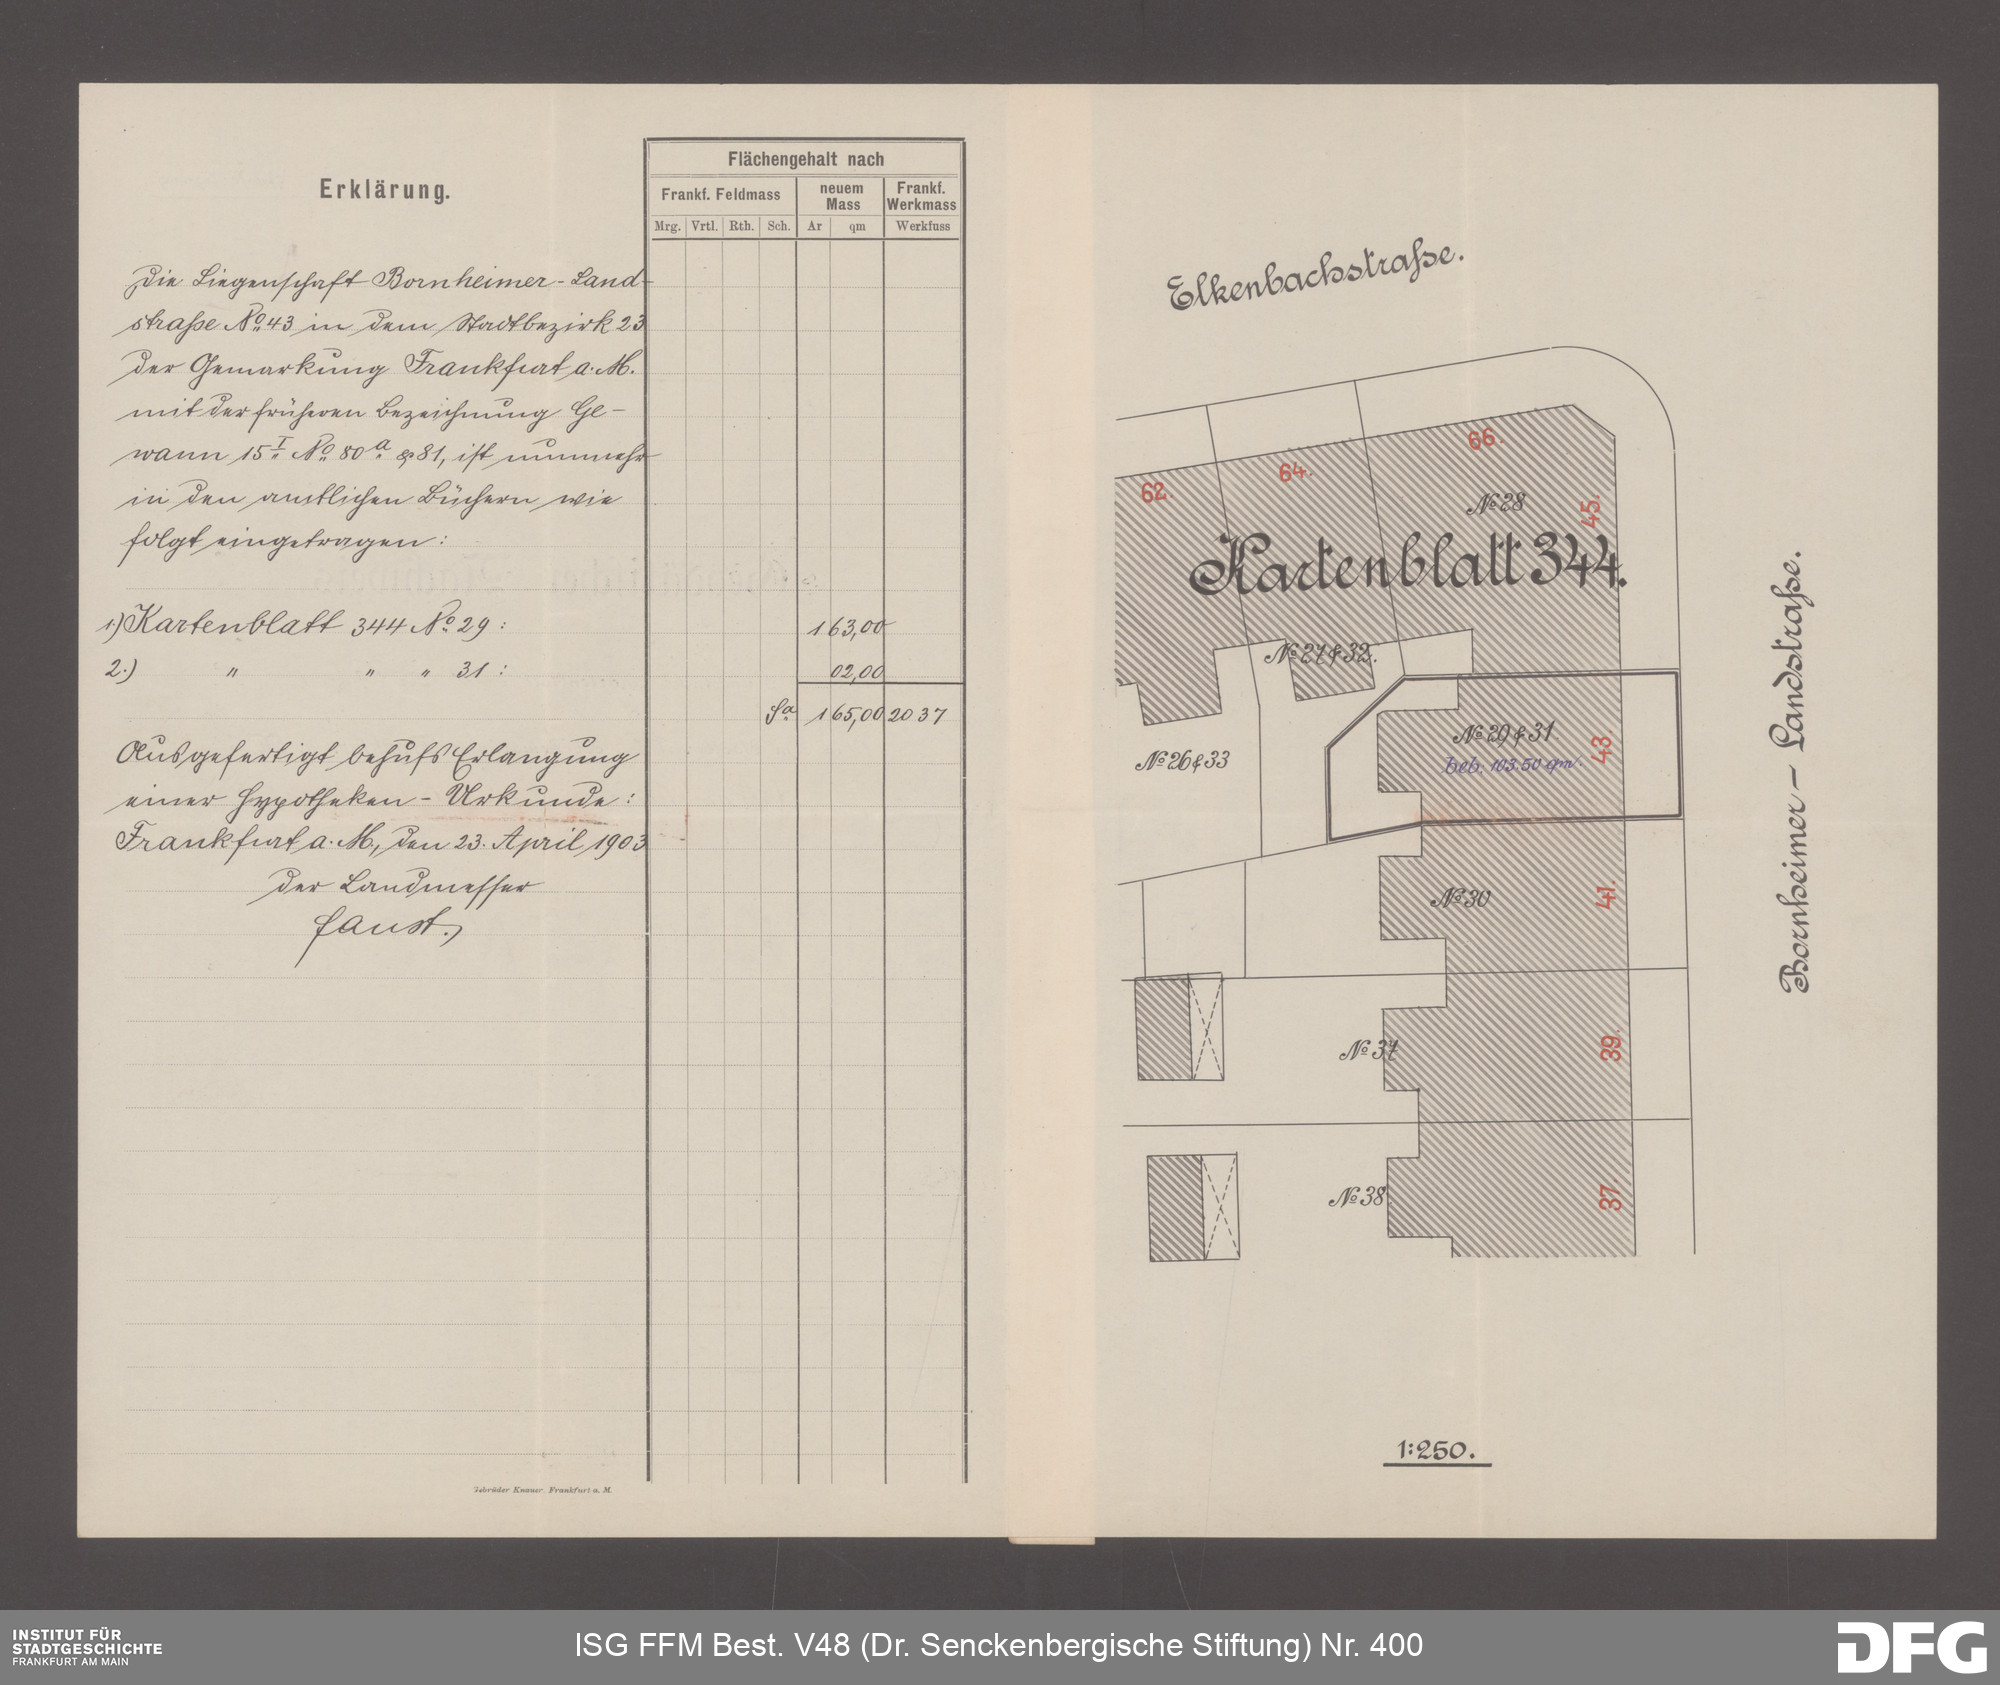 Erklärung.
Flächengehalt nach
Frankf. Feldmass
neuem Mass
Frankf. Werkmass
Mrg. Vrtl. Rth. Sch. Ar qm Werkfuss
Die Liegenschaft Bornheimer-Land-
straße No. 43 in dem Stadtbezirk 23
der Gemarkung Frankfurt a. M.
mit der früheren Bezeichnung Ge-
wann 15 I No. 80 a & 81, ist nunmehr
in den amtlichen Büchern wie
folgt eingetragen:
1.) Kartenblatt 344 No. 29 : 1 63,00
2.) " " " 31 : 02,00
Sa. 1 65,00 20 37
Ausgefertigt behufs Erlangung
einer Hypotheken-Urkunde:
Frankfurt a. M., den 23. April 1903
der Landmesser
Faust.
Gebrüder Knauer, Frankfurt a. M.
Elkenbachstraße.
62.
64.
66.
No 28
45.
Kartenblatt 344.
No 27 & 32.
No 26 & 33
No 29 & 31.
beb. 103.50 qm.
43
No 30
41.
No 37
39.
No 38
37
Bornheimer-Landstraße.
1:250.
INSTITUT FÜR
STADTGESCHICHTE
FRANKFURT AM MAIN
ISG FFM Best. V48 (Dr. Senckenbergische Stiftung) Nr. 400
DFG